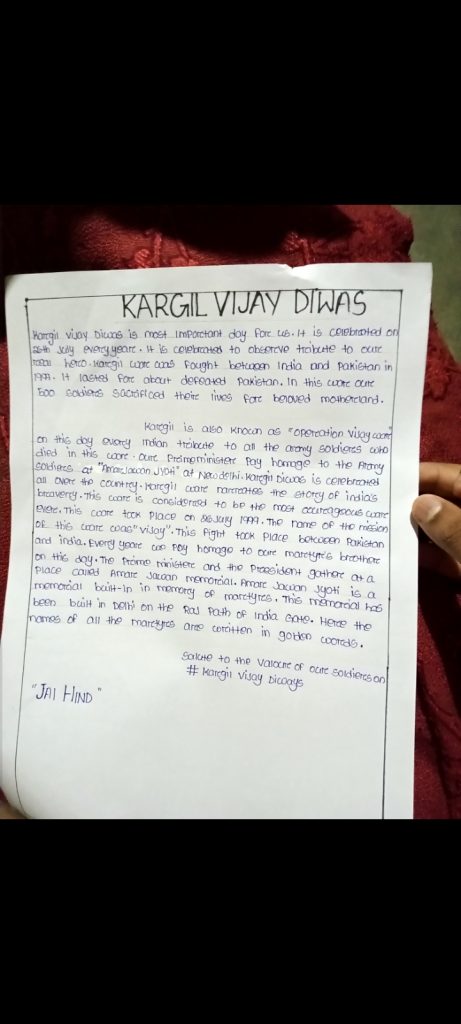 KARGIL VIJAY DIWAS
Kargil vijay Diwas is most important day for us. It is celebrated on
26th July every year. It is celebrated to observe tribute to our
real hero. Kargil ware was fought between India and Pakistan in
1999. It lasted for about defeated Pakistan. In this ware our
500 soldiers sacrificed their lives for beloved motherland.
Kargil is also known as "operation Vijay ware"
on this day every Indian tribute to all the army soldiers who
died in this ware. our Primeminister Pay homage to the Army
soldiers at "Amar Jawan Jyoti" at New delhi. Kargil Diwas is celebrated
all over the country. Kargil ware narrates the story of india's
bravery. This ware is considered to be the most courageous ware
ever. This ware took Place on 26 July 1999. The name of the mission
of this ware was "vijay". This fight took Place between Pakistan
and india. Every year we Pay homage to our martyr's brother
on this day. The Prime minister and the President gather at a
Place called Amar Jawan memorial. Amar Jawan Jyoti is a
memorial built-in in memory of martyrs. This memorial has
been built in Delhi on the Raj Path of India Gate. Here the
names of all the martyrs are written in golden words.
Salute to the Valour of our soldiers on
# Kargil Vijay Diways
"JAI HIND"